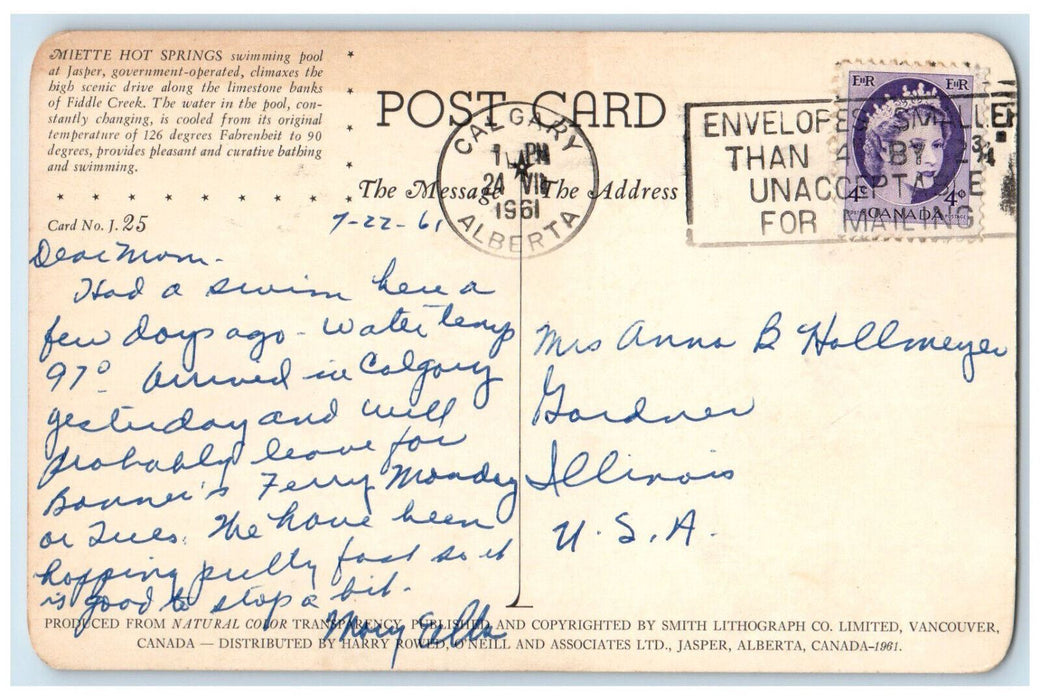 MIETTE HOT SPRINGS swimming pool
at Jasper, government-operated, climaxes the
high scenic drive along the limestone banks
of Fiddle Creek. The water in the pool, con-
stantly changing, is cooled from its original
temperature of 126 degrees Fahrenheit to 90
degrees, provides pleasant and curative bathing
and swimming.
Card No. J. 25
POST CARD
The Message The Address
CALGARY
PM
24 VII
1961
ALBERTA
ENVELOPES SMALLER
THAN 4 BY 2¾
UNACCEPTABLE
FOR MAILING
EIIR EIIR
4¢ 4¢
CANADA
7-22-61
Dear Mom.
Had a swim here a
few days ago - water temp
97° Arrived in Calgary
yesterday and will
probably leave for
Bonner's Ferry Monday
or Tues. We have been
hopping pretty fast so it
is good to stop a bit.
Mary Ella
Mrs Anna B Hollmeyer
Gardner
Illinois
U.S.A.
PRODUCED FROM NATURAL COLOR TRANSPARENCY, PUBLISHED AND COPYRIGHTED BY SMITH LITHOGRAPH CO. LIMITED, VANCOUVER,
CANADA — DISTRIBUTED BY HARRY ROWED, O'NEILL AND ASSOCIATES LTD., JASPER, ALBERTA, CANADA-1961.